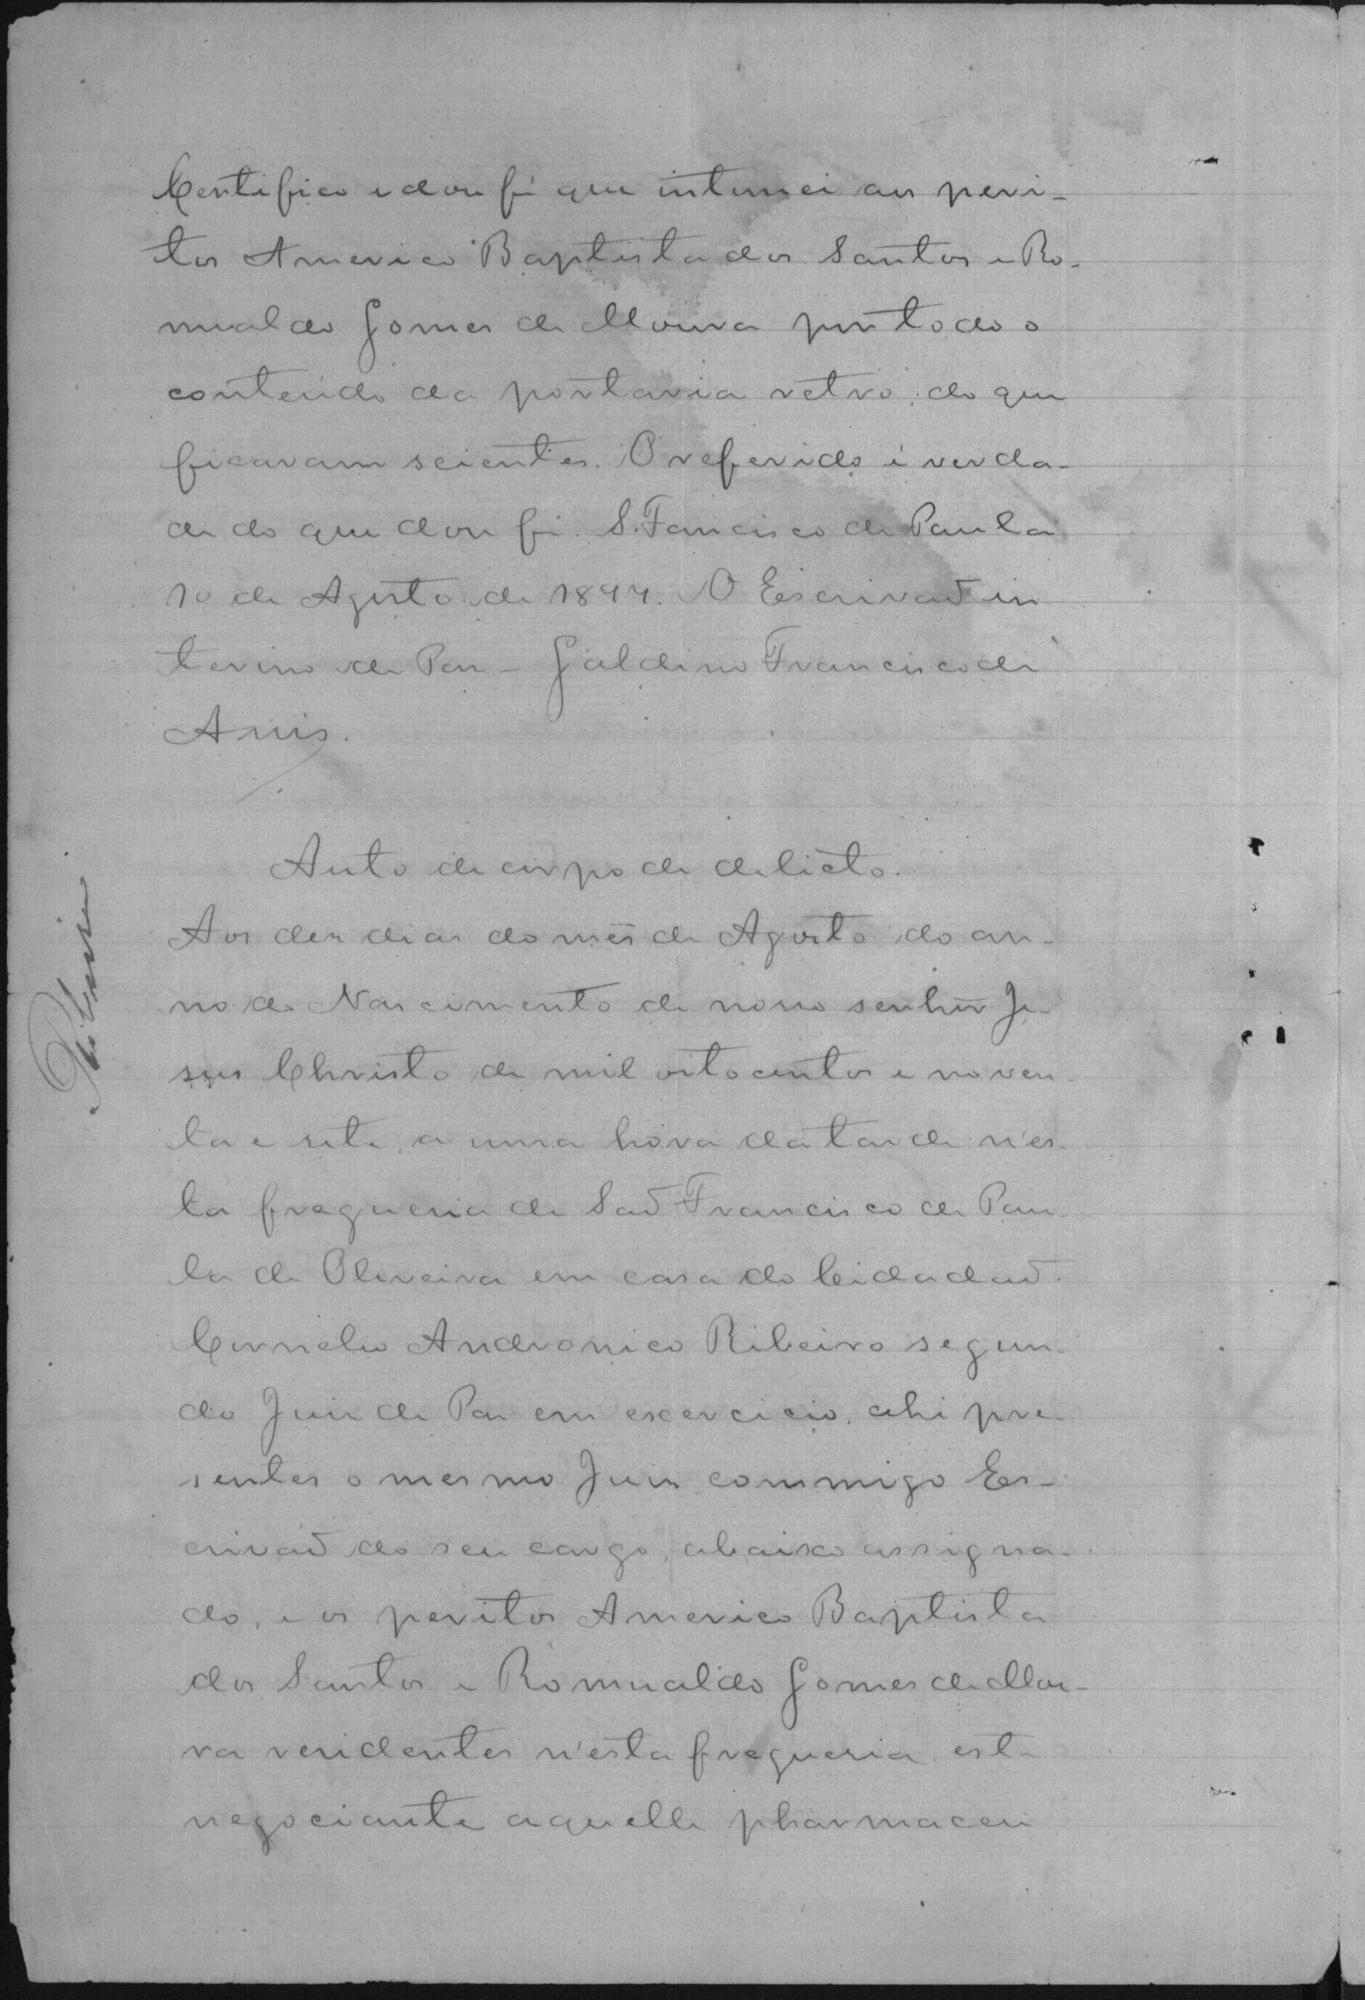 Certifico e dou fé que intimei aos peri-
tos Americo Baptista dos Santos e Ro-
mualdo Gomes de Moura por todo o
conteudo da portaria retro, do que
ficaram scientes. O referido é verda-
de do que dou fé. S. Fancisco de Paula
10 de Agosto de 1897. O Escrivaõ in
terino de Paz – Galdino Francisco de
Assis.
Auto de corpo de delicto.
Aos dez dias do mes de Agosto do an-
no do Nascimento de nosso senhor Je-
sus Christo de mil oitocentos e noven-
ta e sete, a uma hora da tarde n'es-
ta freguesia de Saõ Francisco de Pau-
la de Oliveira em casa do Cidadaõ
Cornelio Andronico Ribeiro segun-
do Juiz de Paz em exercicio, ahi pre-
sentes o mesmo Juiz commigo Es-
crivaõ do seu cargo, abaixo assigna-
do, e os peritos Americo Baptista
dos Santos e Romualdo Gomes de Mou-
ra residentes n'esta freguesia, este
negociante aquelle pharmaceu
Ribeiro